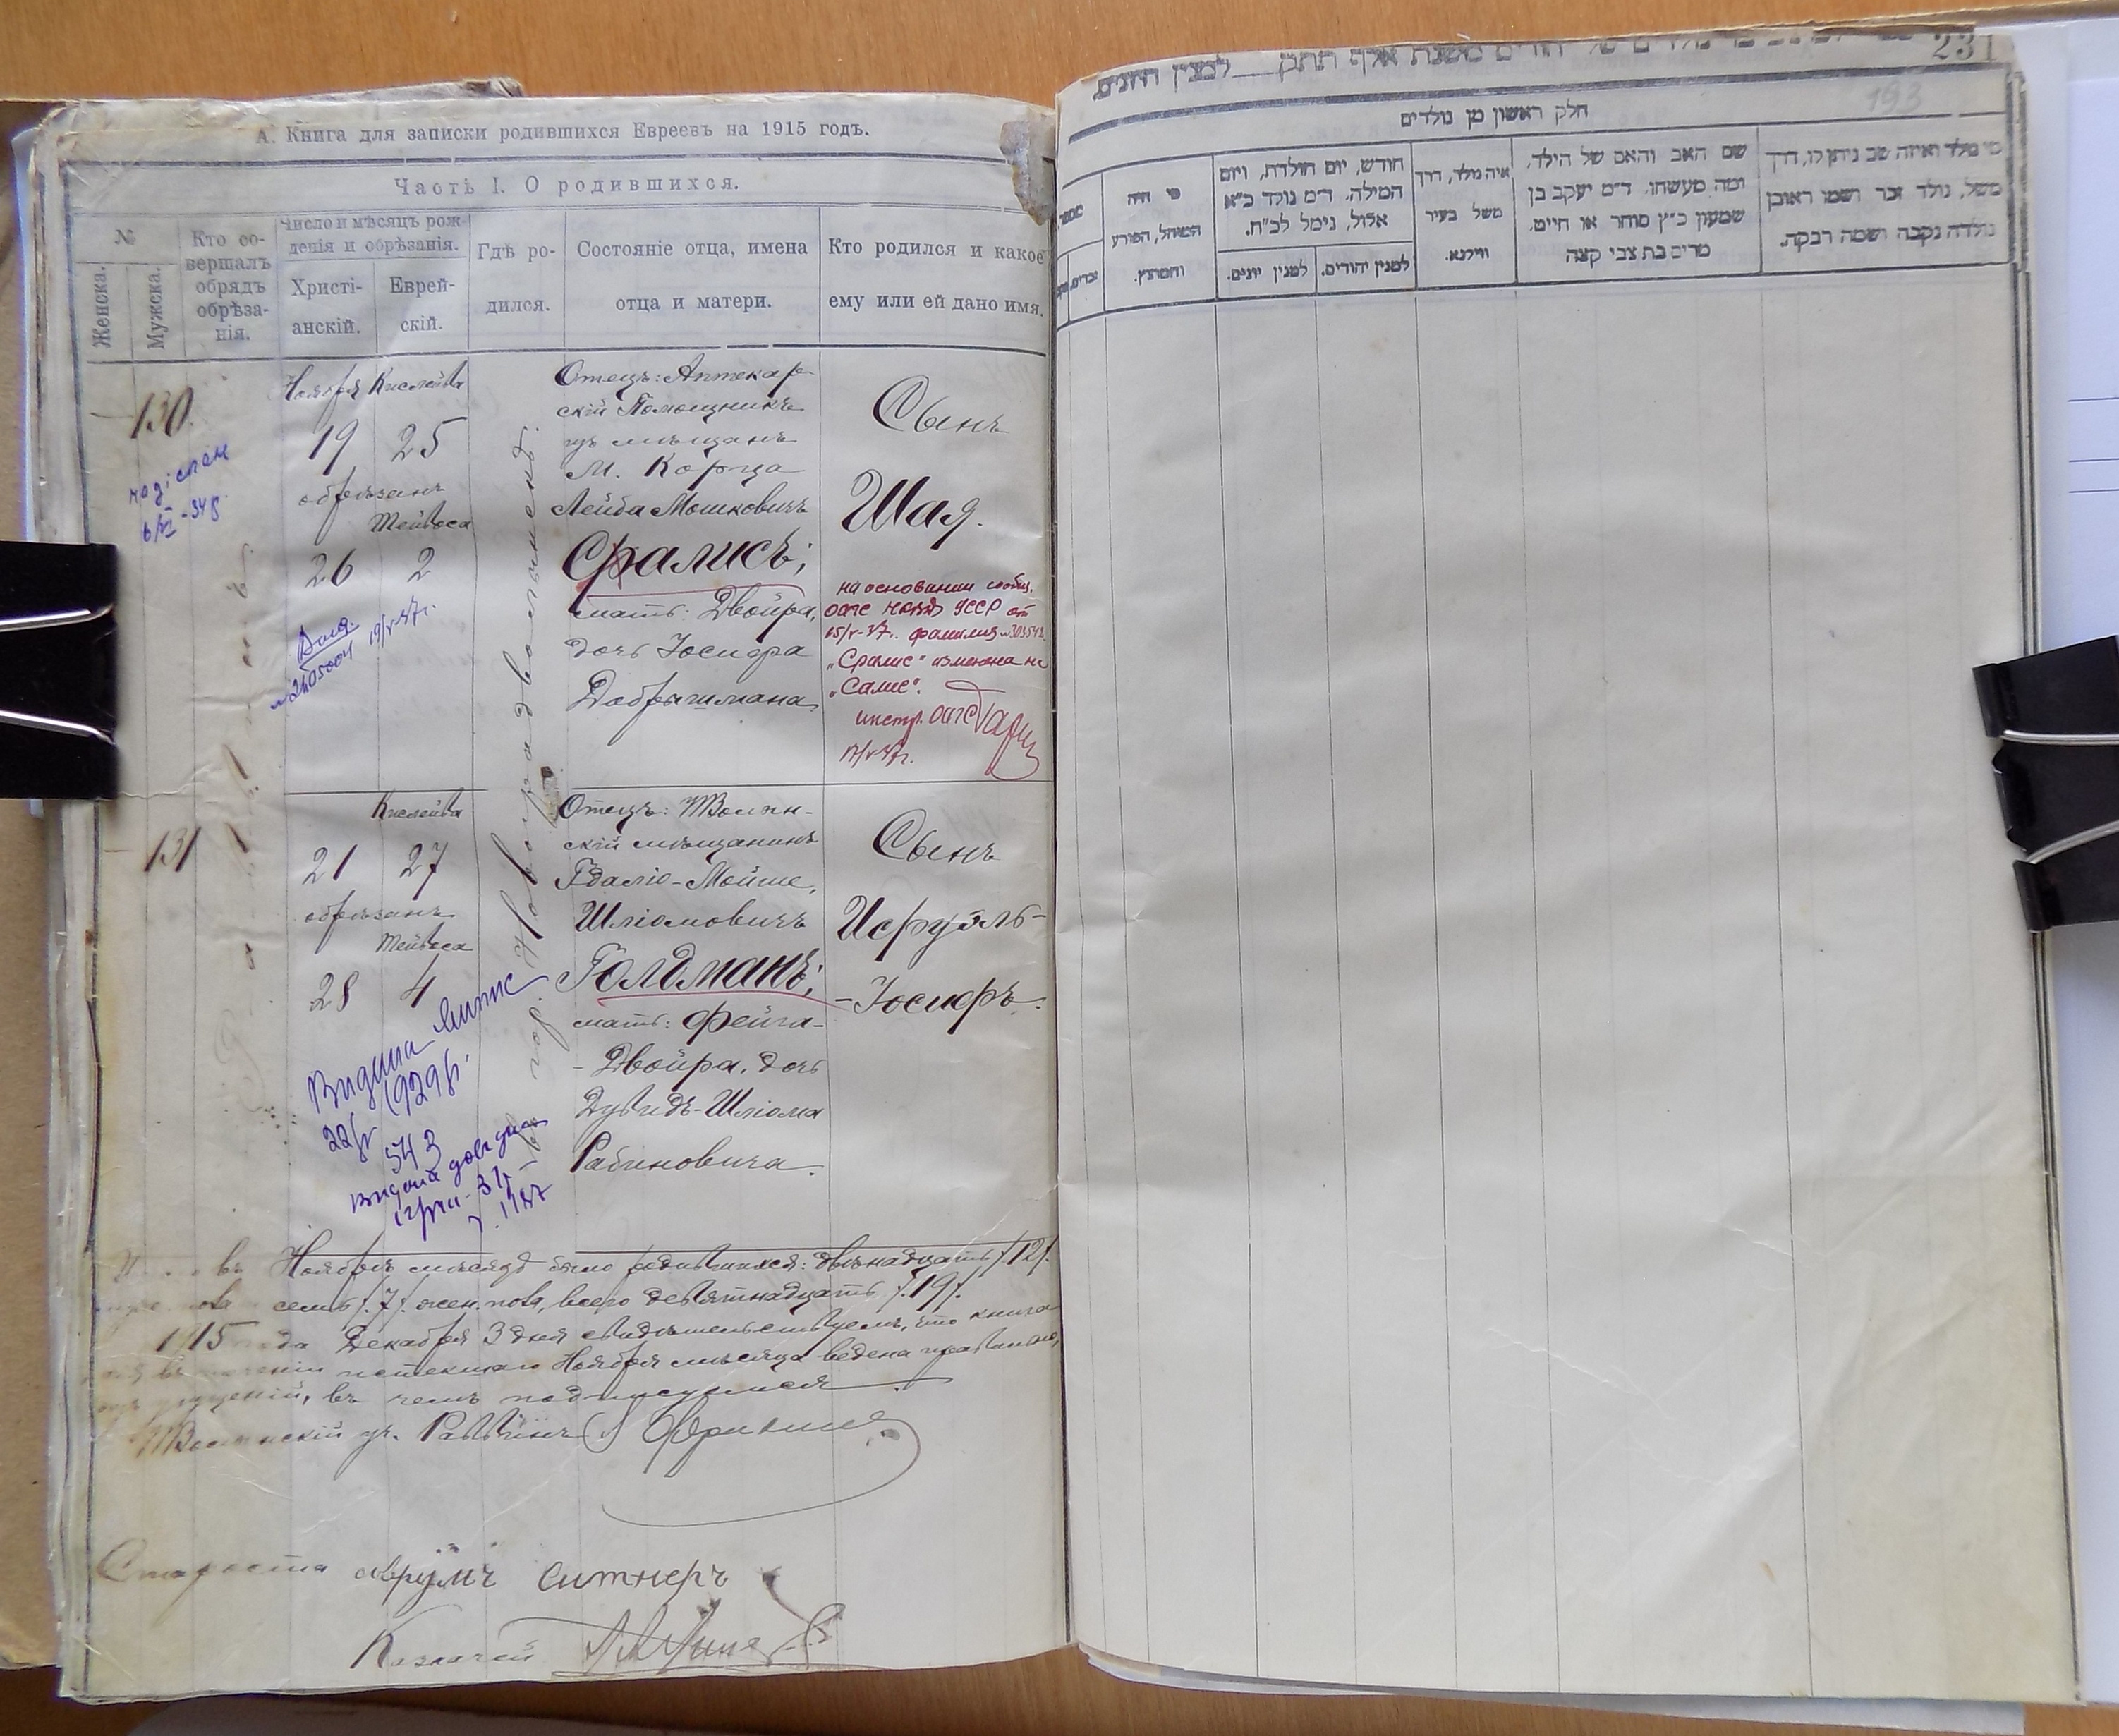 А. Книга для записки родившихся Евреевъ на 1915 годъ.
Часть I. О родившихся.
№
Женска.
Мужска.
Кто со-
вершалъ
обрядъ
обрѣза-
нія.
Число и мѣсяцъ рож-
денія и обрѣзанія.
Христі-
анскій.
Еврей-
скій.
Гдѣ ро-
дился.
Состояніе отца, имена
отца и матери.
Кто родился и какое
ему или ей дано имя.
130.
6/VI -34 р.
Ноября Кислейва
19 25
обрѣзанъ
Тейвеса
26 2
19/V-37г.
Отецъ: Аптекар-
скій Помощникъ
изъ мѣщанъ
М. Корца
Лейба Мошковичъ
Сралисъ;
мать: Двойра,
дочь Іосифа
Добрышмана
Сынъ
Шая.
на основании сообщ.
ОАГС НКВД УССР от
15/V-37г. фамилия
„Сралис" изменена на
„Салис".
инстр. ОАГС
17/V-37г.
131
Кислейва
21 27
обрѣзанъ
Тейвеса
28 4
въ гор. Новоградволынскѣ.
Отецъ: Волын-
скій мѣщанинъ
Гдалю-Мойше,
Шліомовичъ
Голдманъ;
мать: Фейга-
-Двойра, дочь
Дувидъ-Шліома
Рабиновича.
Сынъ
Исруэль-
-Іосифъ.
Видана
1929р.
543
Видана довідка
въ Ноябрѣ мѣсяцѣ было родившихся: двѣнадцать /12/.
семь /.7/. жен. пола, всего девятнадцать /.19/.
1915 года Декабря 3 дня свидѣтельствуемъ, что книга
истекшаго Ноября мѣсяца ведена правильно,
въ чемъ подписуемся
Волынскій уѣ. Раввинъ
Староста Аврумъ Ситнеръ
Казначей
231
193
חלק ראשון מן נולדים
מי נולד ואיזה שם ניתן לו, דרך
משל, נולד זכר ושמו ראובן
נולדה נקבה ושמה רבקה.
שם האב והאם של הילד,
ומה מעשהו. ד״מ יעקב בן
שמעון כ״ץ סוחר או חיים,
מרים בת צבי קצה
איה נולד, דרך
משל בעיר
ווילנא.
חודש, יום הולדת, ויום
המילה. ד״מ נולד כ״א
אלול, נימל לכ״ח.
למנין יהודים.
למנין יונים.
מי היה
המוהל, הפורע
והמוצץ.